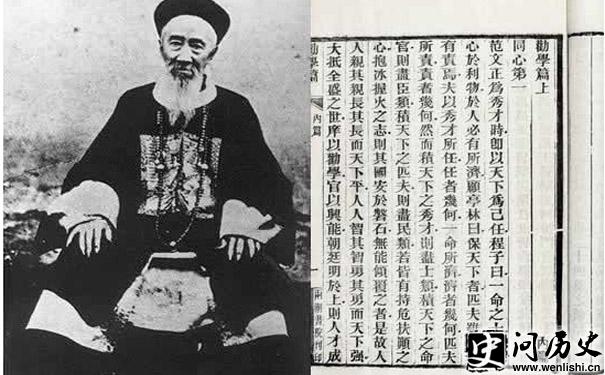 勸學篇上
同心第一
范文正爲秀才時卽以天下爲己任程子曰一命之士
心於利物於人必有所濟顧亭林曰保天下者匹夫雖
有責焉夫以秀才所任任者幾何一命所濟濟者幾何匹夫
所責責者幾何然而積天下之秀才則盡士類積天下之命
官則盡臣類積天下之匹夫則盡民類若皆有持危扶顚之
心抱冰握火之志則其國安於磐石無能傾覆之者是故人
人親其親長其長而天下平人人智其智勇其勇而天下强
大抵全盛之世庠以勸學官以興能朝廷明於上則人才成
勸學篇
內篇
兩湖書院刊印
问历史
www.wenlishi.cn